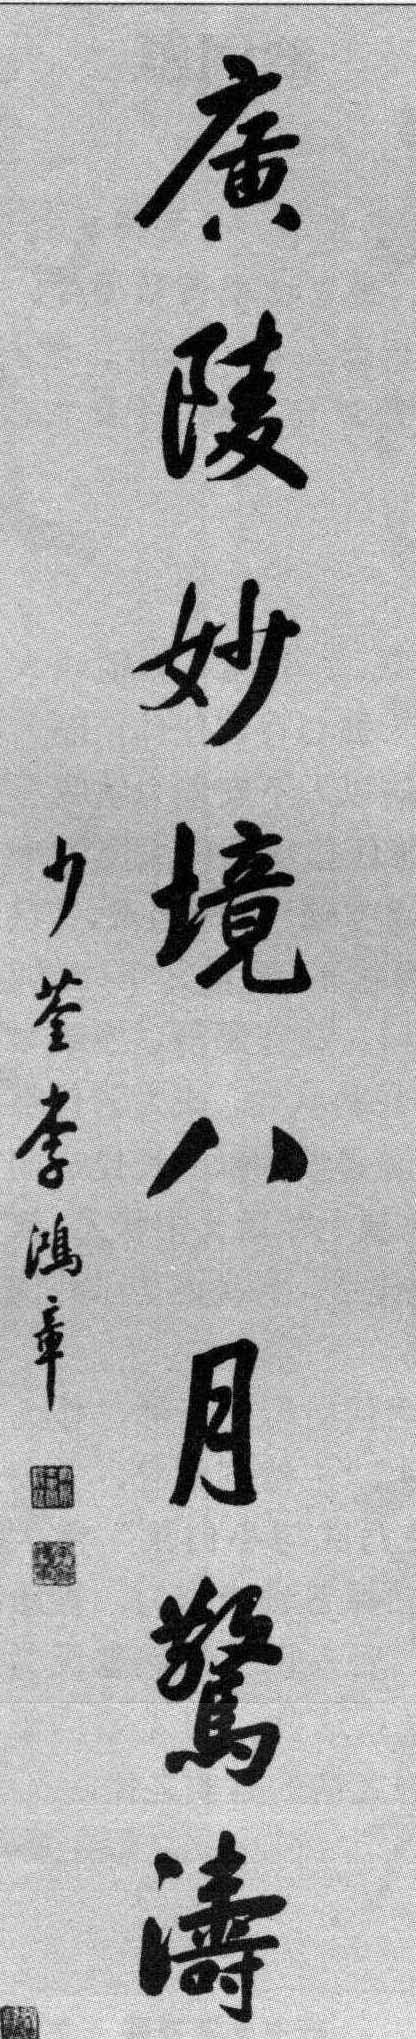 廣陵妙境八月驚濤
少荃李鴻章